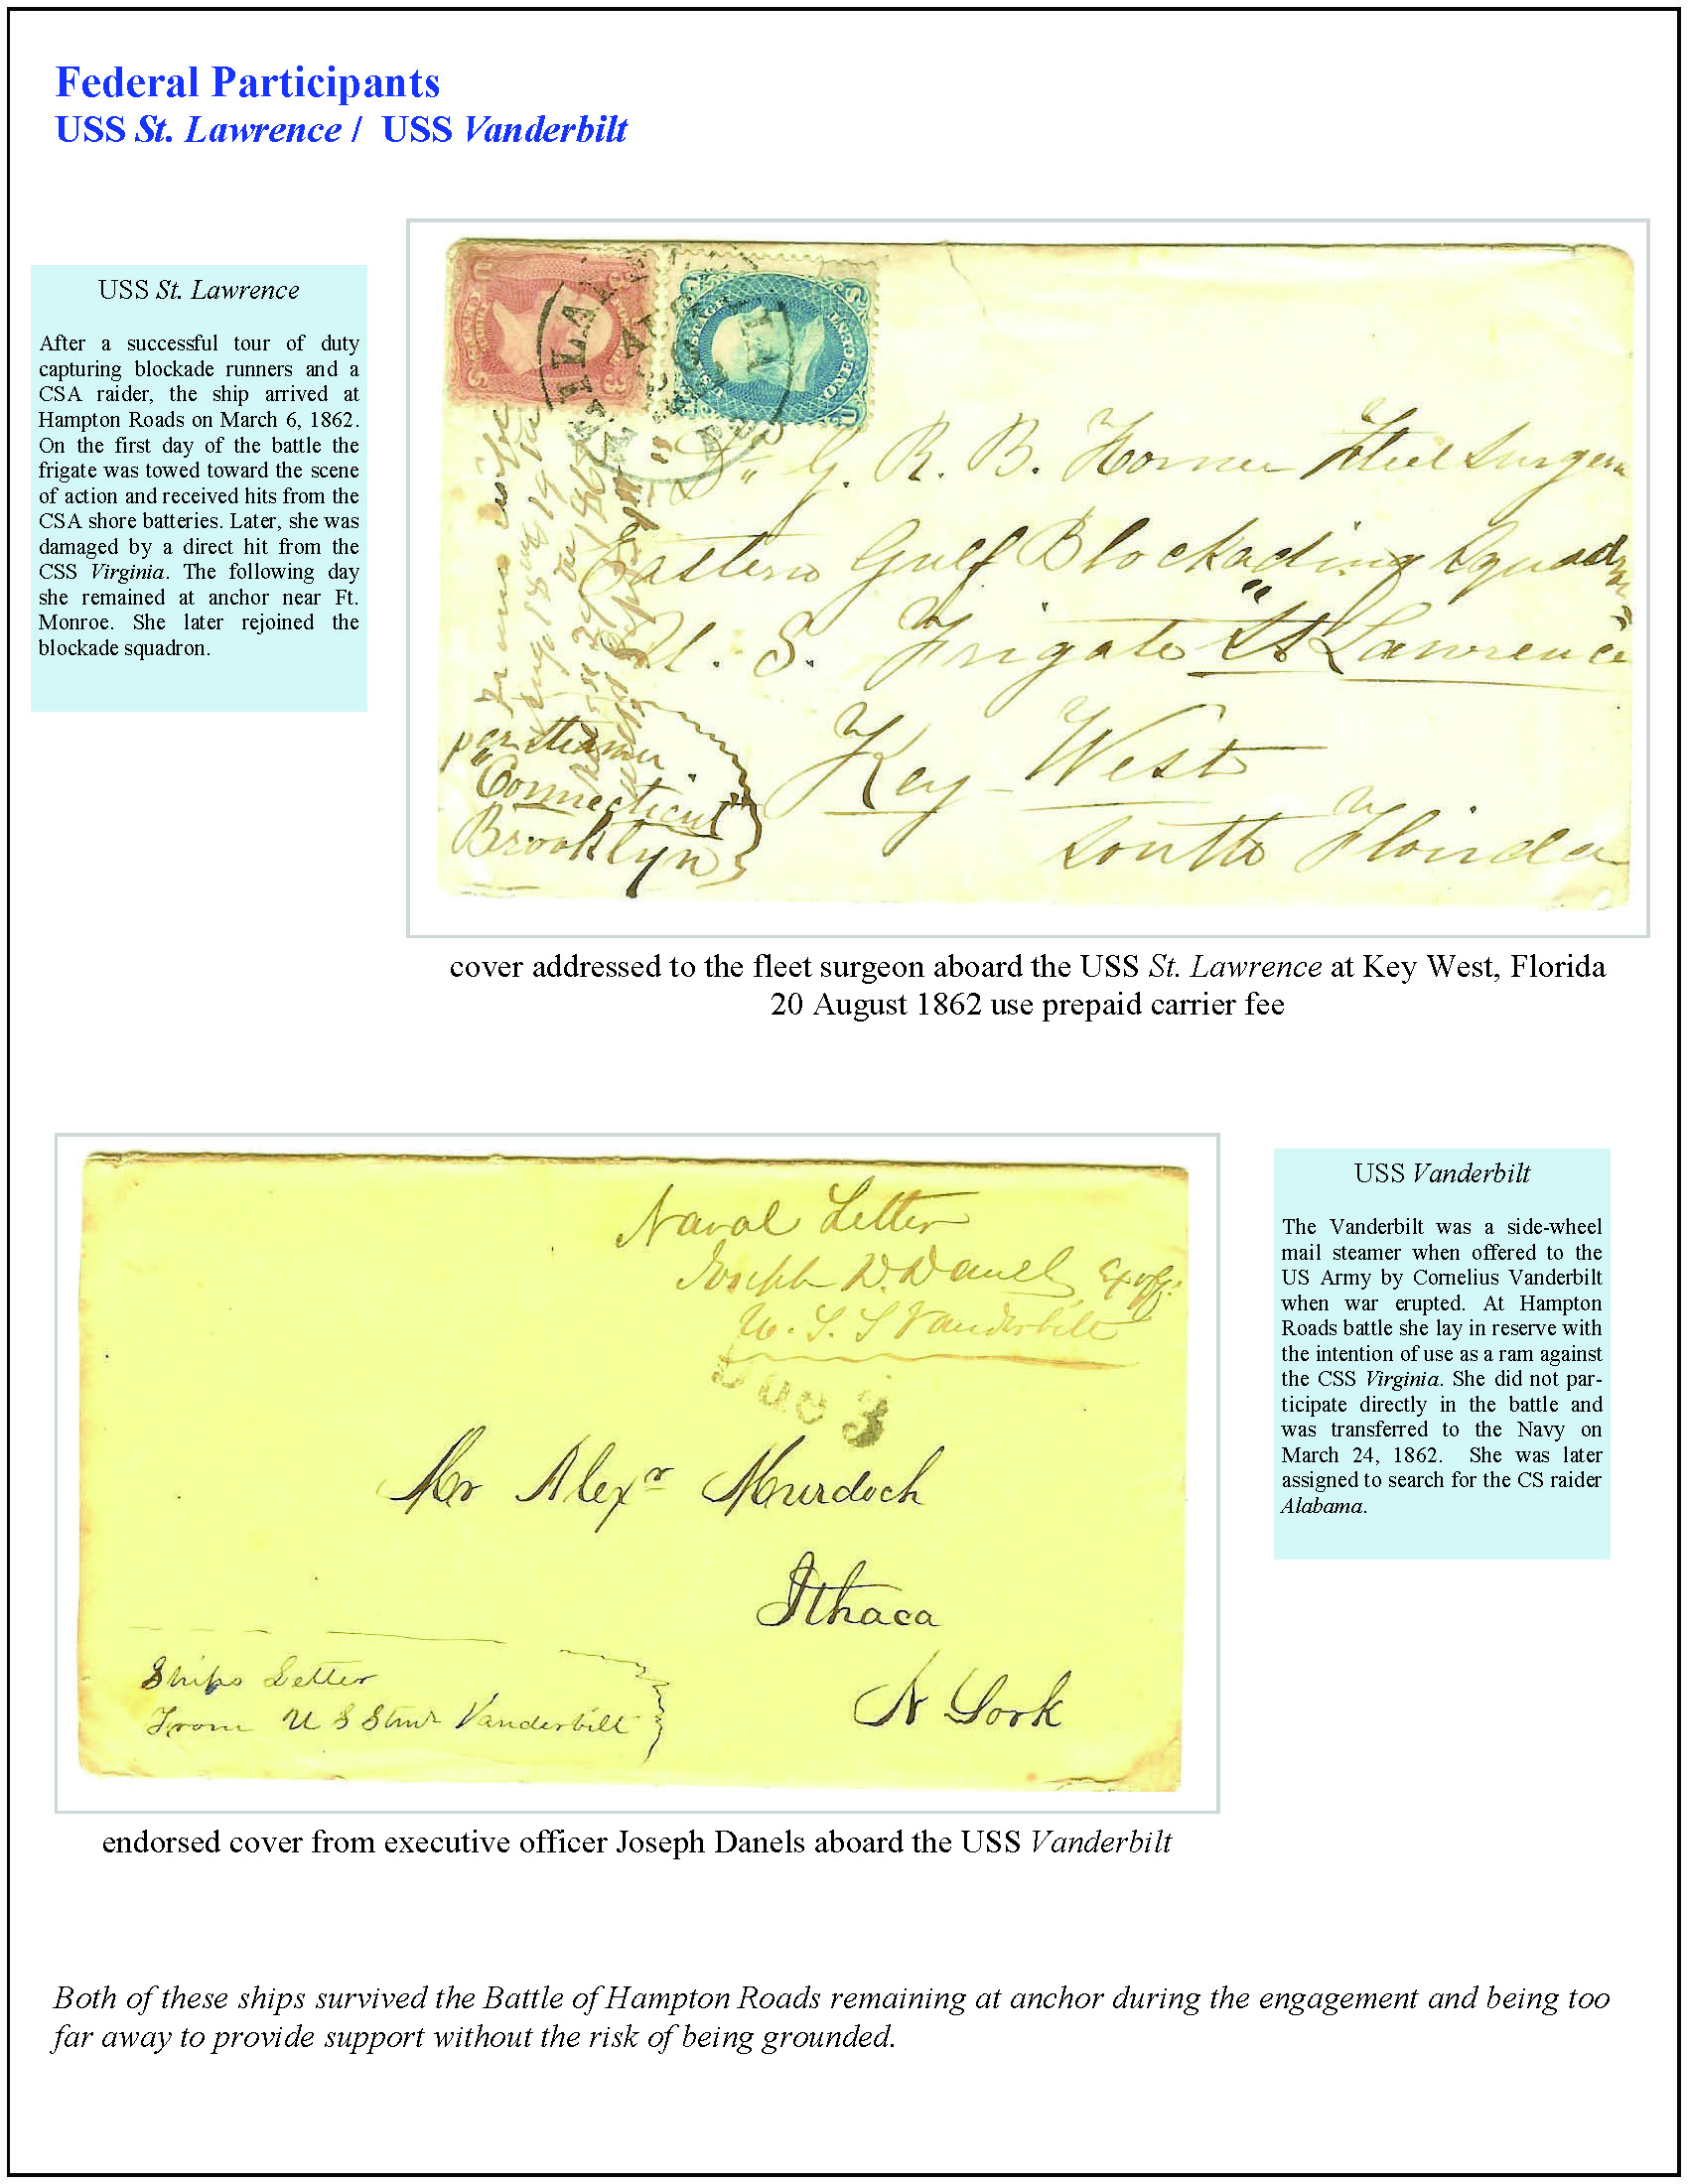 Federal Participants
USS St. Lawrence / USS Vanderbilt
USS St. Lawrence
After a successful tour of duty
capturing blockade runners and a
CSA raider, the ship arrived at
Hampton Roads on March 6, 1862.
On the first day of the battle the
frigate was towed toward the scene
of action and received hits from the
CSA shore batteries. Later, she was
damaged by a direct hit from the
CSS Virginia. The following day
she remained at anchor near Ft.
Monroe. She later rejoined the
blockade squadron.
Dr G. R. B. Horner Fleet Surgeon
Eastern Gulf Blockading Squadron
U. S. Frigate "St Lawrence"
Key West
South Florida
per steamer
"Connecticut"
Brooklyn
cover addressed to the fleet surgeon aboard the USS St. Lawrence at Key West, Florida
20 August 1862 use prepaid carrier fee
Naval Letter
Joseph D. Danels Ex off.
U. S. S Vanderbilt
Due 3
Mr Alexr Murdoch
Ithaca
N York
Ships Letter
From U S Stmr Vanderbilt
endorsed cover from executive officer Joseph Danels aboard the USS Vanderbilt
USS Vanderbilt
The Vanderbilt was a side-wheel
mail steamer when offered to the
US Army by Cornelius Vanderbilt
when war erupted. At Hampton
Roads battle she lay in reserve with
the intention of use as a ram against
the CSS Virginia. She did not par-
ticipate directly in the battle and
was transferred to the Navy on
March 24, 1862. She was later
assigned to search for the CS raider
Alabama.
Both of these ships survived the Battle of Hampton Roads remaining at anchor during the engagement and being too
far away to provide support without the risk of being grounded.